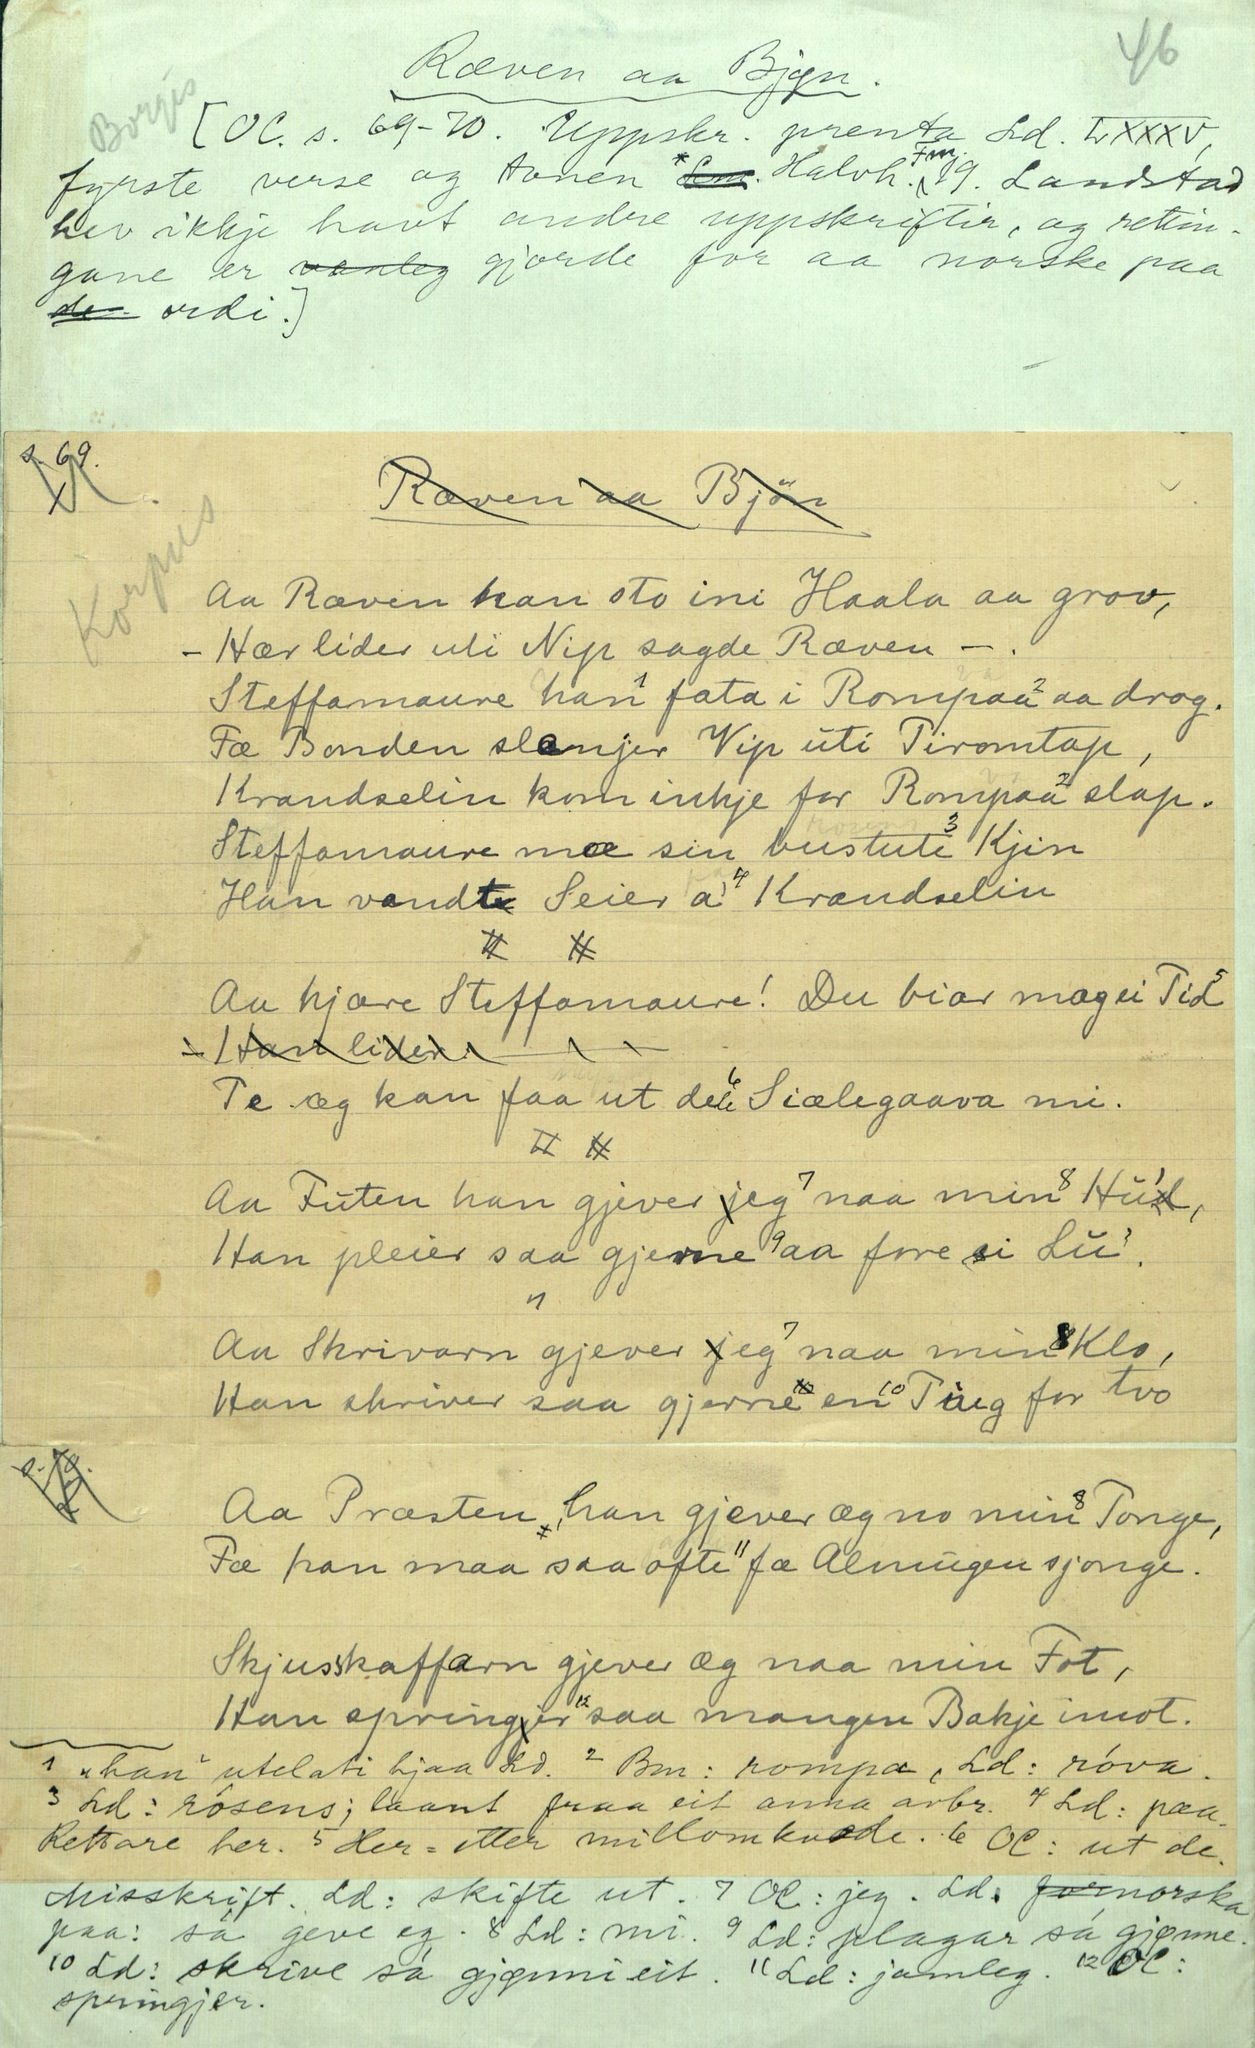 46
Ræven aa Bjøn.
Borgis
[OC. s. 69-70. Uppskr. prenta Ld. LXXXV,
fyrste verse og tonen * Halvh. Fm. 19. Landstad
hev ikkje havt andre uppskriftir, og rettin-
gane er vanleg gjorde for aa norske paa
de ordi.]
s. 69.
Ræven aa Bjön
Korpus
Aa Ræven han sto ini Haala aa grov,
- Hær lider uti Nip sagde Ræven - .
Steffamaure han¹ fata i Rompaa² aa drog.
Fæ Bonden slænjer Vip uti Tiromtap,
Krandselin kom inkje for Rompaa² slap.
Steffamaure mæ sin bustute³ Kjin
Han vandt Seier a'⁴ Krandselin
Aa kjære Steffamaure! Du biar mæg ei Tid⁵
- Han lider - - -
Te æg kan faa ut dele⁶ Siælegaava mi.
Aa Fúten han gjever jeg⁷ naa min⁸ Húd,
Han pleier saa gjerne⁹ aa fore si Lú'.
"
Aa Skrivarn gjever jeg⁷ naa min⁸ Klo,
Han skriver saa gjerne en¹⁰ Ting for tvo
s. 70.
Aa Præsten, han gjever æg no min⁸ Tonge,
Fæ han maa saa ofte¹¹ fæ Almúgen sjonge.
Skjusskaffarn gjever æg naa min Fot,
Han springer¹² saa mangen Bakje imot.
1 "han" utelati hjaa Ld. 2 Bm: rompa, Ld: róva.
3 Ld: rósens; laant fraa eit anna avbr. 4 Ld: paa.
Rettare her. 5 Her-etter millomkvæde. 6 OC: ut de.
Misskrift. Ld: skifte ut. 7 OC: jeg. Ld. fornorska
paa: så geve eg. 8 Ld: mi. 9 Ld: plagar så gjønne.
10 Ld: skrive så gjønni eit. 11 Ld: jamleg. 12 OC:
springjer.